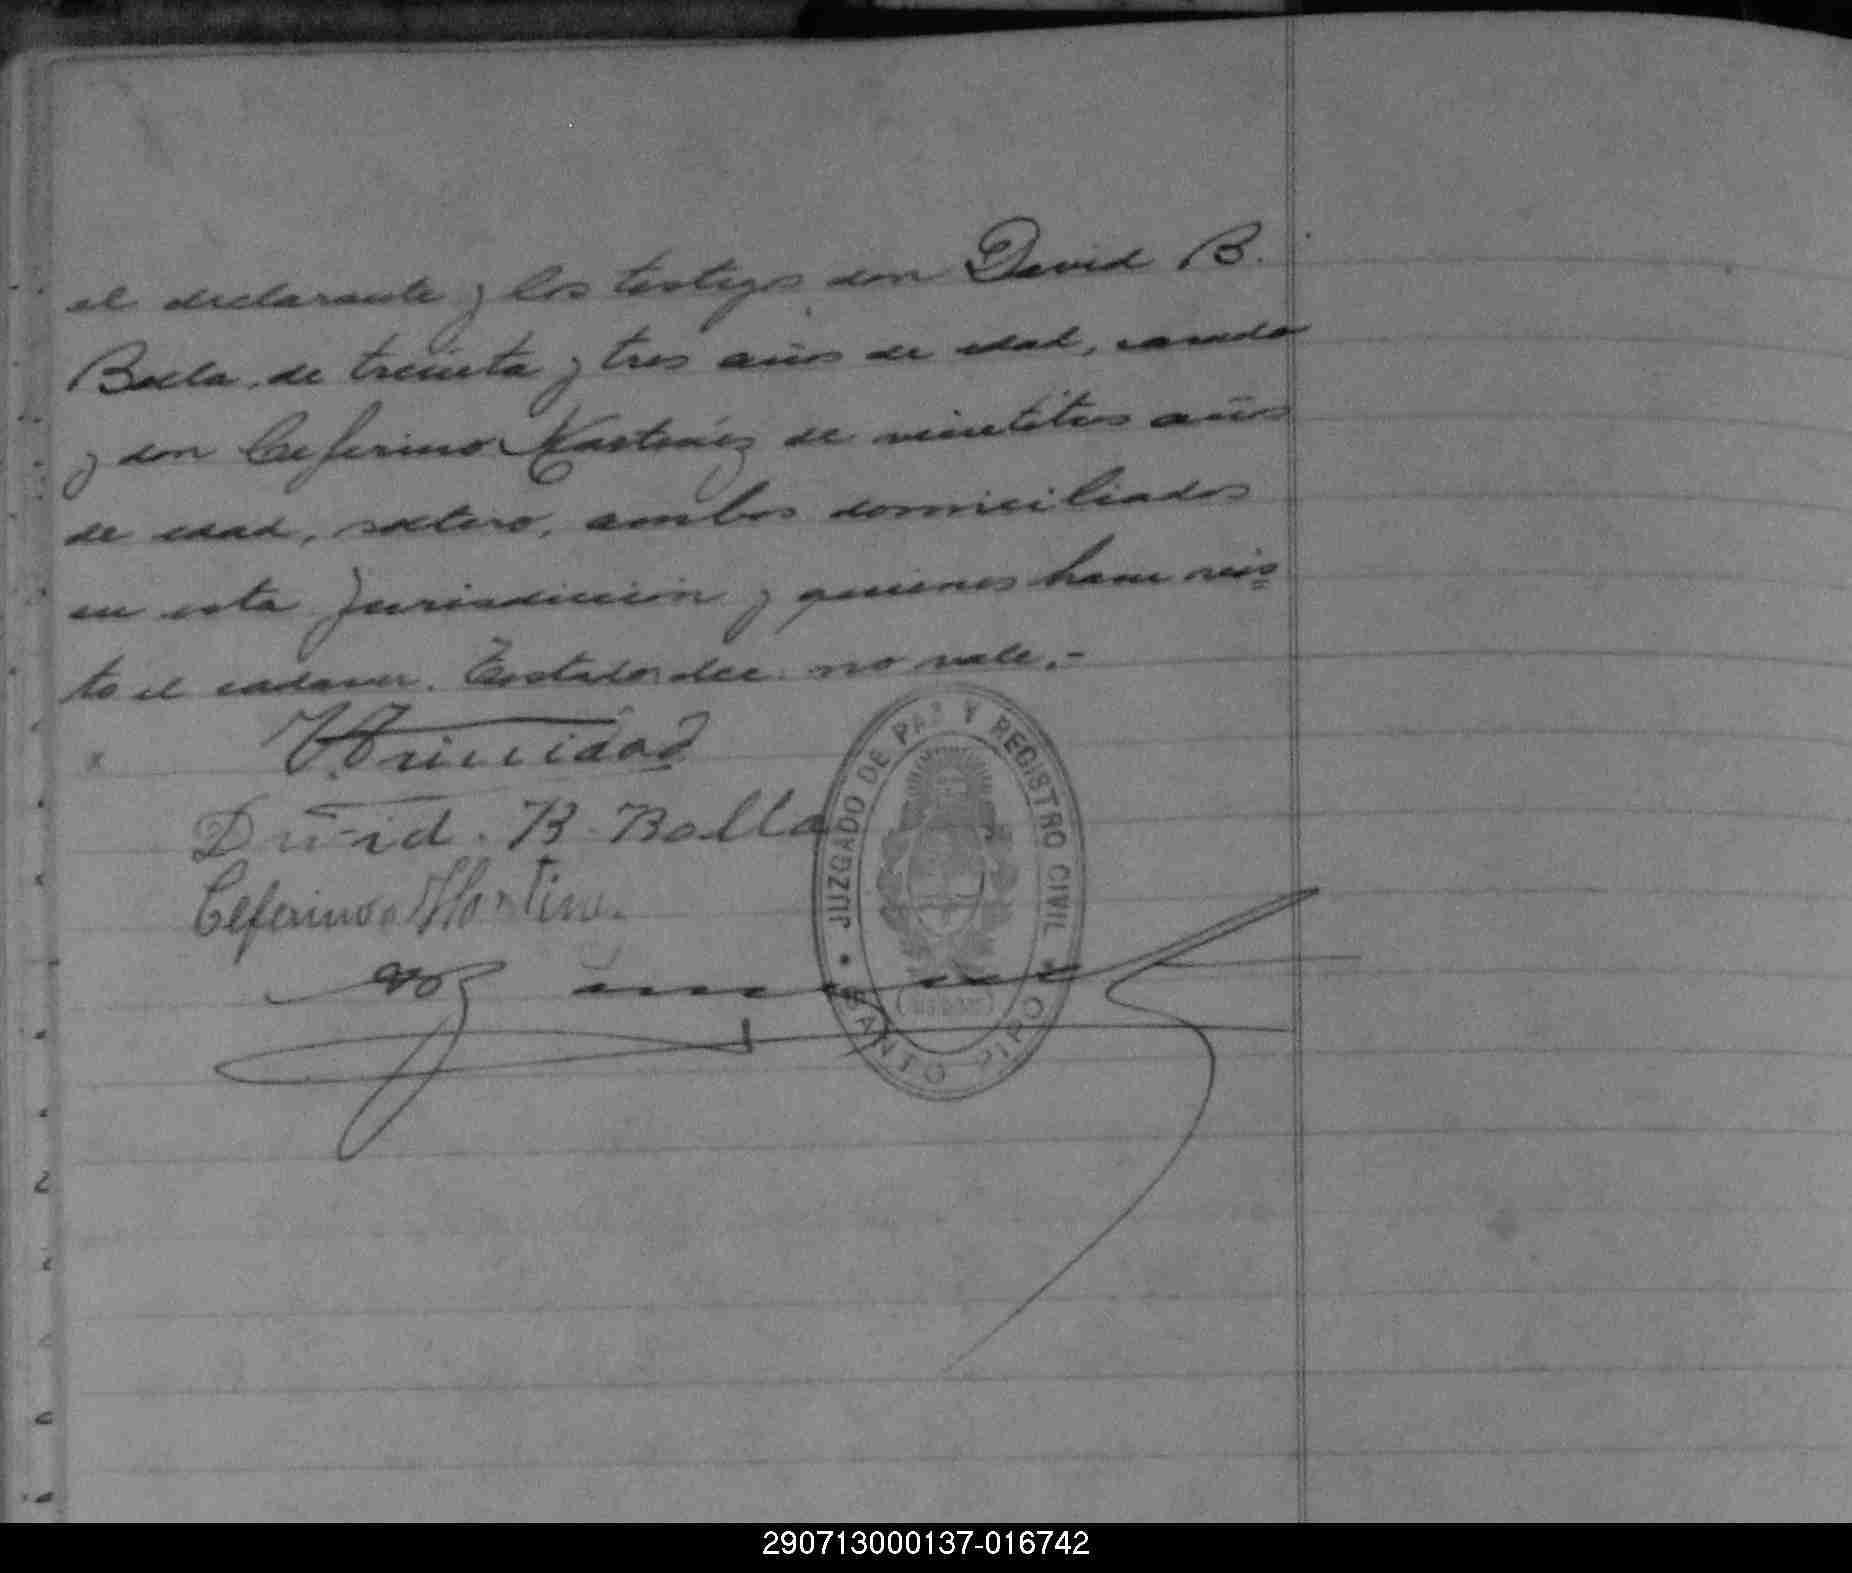 el declarante y los testigos don David B.
Bolla de treinta y tres años de edad, casado
y don Ceferino Martinez de veintitres años
de edad, soltero, ambos domiciliados
en esta Jurisdiccion y quienes han vis=
to el cadaver. Testado: dee: no vale.-
Trinidad
David. B. Bolla
Ceferino Martine
JUZGADO DE PAZ Y REGISTRO CIVIL
290713000137-016742